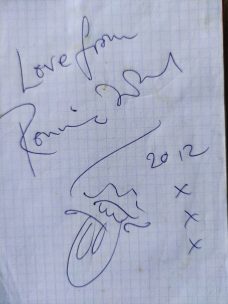 Love from
Ronnie Wood
2012
x
x
x